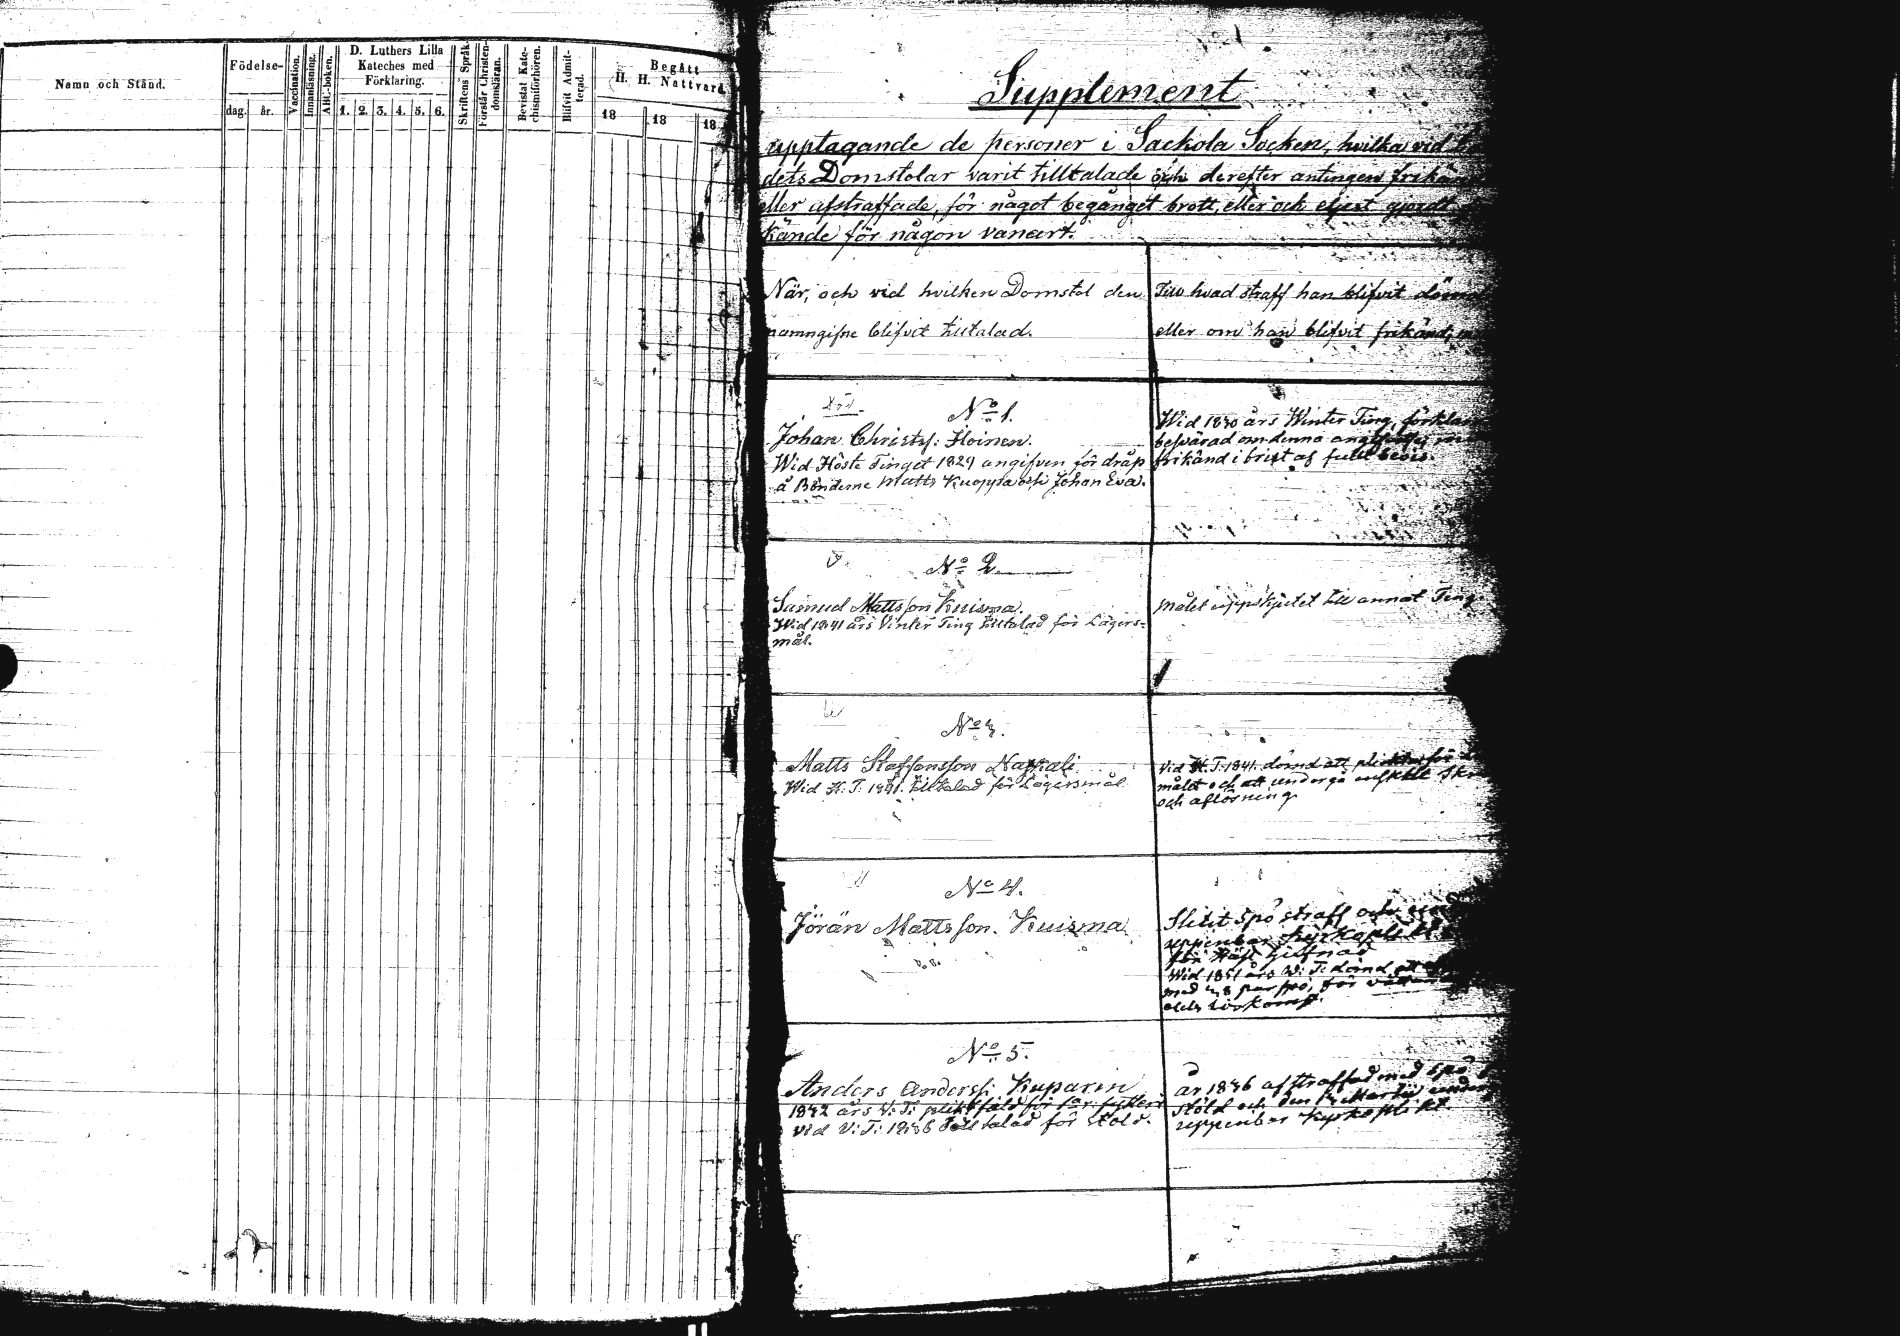 Namn och Stånd.
Födelse-
dag.
år.
Vaccination.
Innanläsning.
ABC-boken.
D. Luthers Lilla
Kateches med
Förklaring.
1. 2. 3. 4. 5. 6.
Skriftens Språk.
Förstår Christen-
domsläran.
Bevistat Kate-
chismiförhören.
Blifvit Admit-
terad.
Begått
H. H. Nattvard.
18
18
18
Supplement
upptagande de personer i Sackola Socken, hvilka vid
dets Domstolar varit tilltalade och derefter antingen
eller afstraffade, för något begånget brott, eller och eljest
kände för någon vanart.
När, och vid hvilken Domstol den
namngifne blifvit tilltalad.
Till hvad straff han blifvit
eller om han blifvit frikänd,
No 1.
Johan Christsf: Hoinen.
Wid Höste Tinget 1829 angifven för dråp
å Bönderne Matts Kuappa och Johan Eva.
Wid 1830 års Winter Ting,
besvärad om denna
frikänd i brist af fullt bevis.
No 2.
Samuel Mattsson Kuisma.
Wid 1841 års Vinter Ting tilltalad för Lägers-
mål.
Målet uppskjutet till annat Ting
No 3.
Matts Staffansson Nappali
Wid H. T. 1841. tilltalad för Lägersmål
Vid H. T. 1841. dömd att plikta för
målet och att undergå enskildt
och aflösning
No 4.
Jörän Mattsson. Kuisma
Slitit spö straff och
uppenbar kyrkoplikt
för
Wid 1851 års W: T: dömd att
med 28 par spö, för
No 5.
Anders Anderss: Kuparin
1842 års V: T: pliktfäld för
vid V: T: 1846 tilltalad för stöld.
år 1846 afstraffad med spö
stöld och den
uppenbar kyrkoplikt.